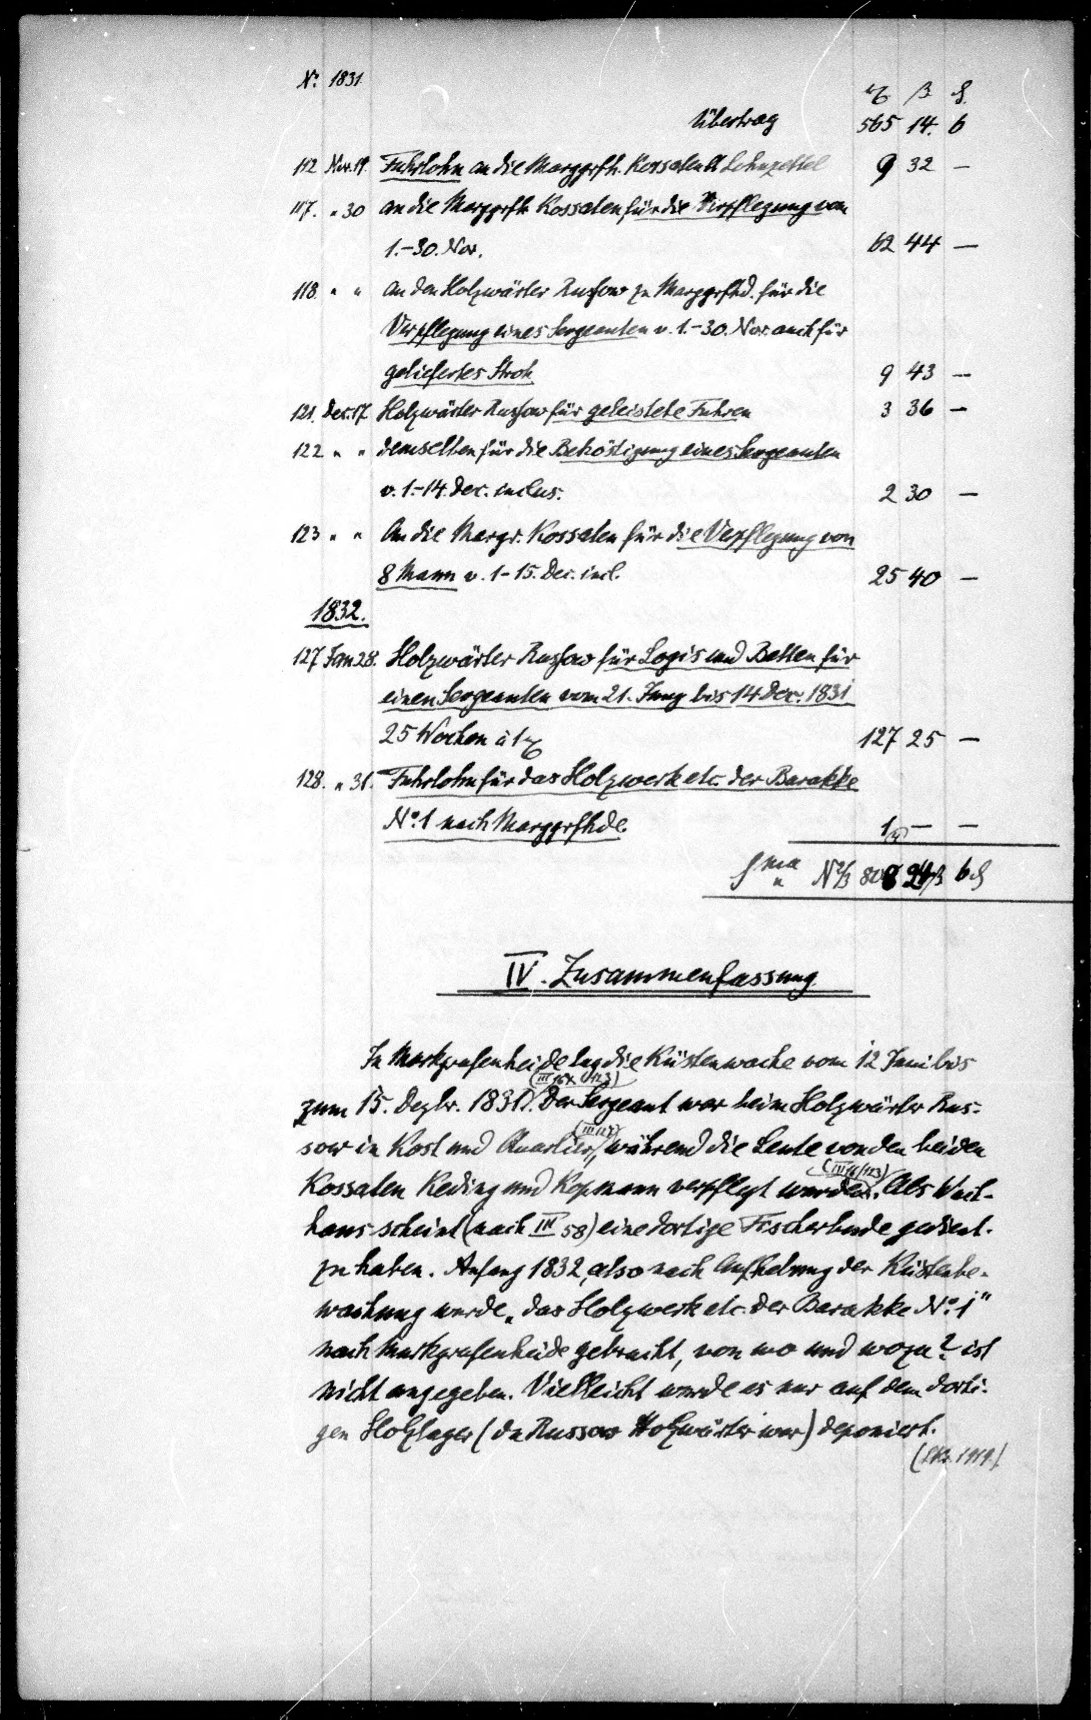 No. 1831.
Übertrag 565 14. 6
112 Nov. 19. Fuhrlohn an die Marggrfh. Kossaten lt Lohnzettel 9 32 —
117. " 30 an die Marggrfh. Kossaten für die Verpflegung vom
1.–30. Nov. 62 44 —
118. " " an den Holzwärter Russow zu Marggrfhd. für die
Verpflegung eines Sergeanten v. 1.–30. Nov. auch für
geliefertes Stroh 9 43 —
121. Dec. 17 Holzwärter Russow für geleistete Fuhren 3 36 —
122 " " demselben für die Beköstigung eines Sergeanten
v. 1.–14. Dec. inclus. 2 30 —
123 " " An die Margr. Kossaten für die Verpflegung von
8 Mann v. 1–15. Dec. incl. 25 40 —
1832.
127 Jan 28. Holzwärter Russow für Logis und Betten für
einen Sergeanten vom 21. Juny bis 14 Dec. 1831
25 Wochen à 1 127 25 —
128. " 31. Fuhrlohn für das Holzwerk etc. der Barakke
No. 1 nach Marggrfhde. 1 — —
Sma 808 24 ß 6
IV. Zusammenfassung
In Markgrafenheide lag die Küstenwache vom 12 Juni bis
zum 15. Dezbr. 1831. Der Sergeant war beim Holzwärter Rus-
sow in Kost und Quartier, während die Leute von den beiden
Kossaten Keding und Kopmann verpflegt wurden. Als Wach-
haus scheint (nach III 58) eine dortige Fischerbude gedient
zu haben. Anfang 1832, also nach Aufhebung der Küstenbe-
wachung wurde „das Holzwerk etc. der Barakke No. 1"
nach Markgrafenheide gebracht, von wo und wozu? ist
nicht angegeben. Vielleicht wurde es nur auf dem dorti-
gen Holzlager (da Russow Holzwärter war) deponiert.